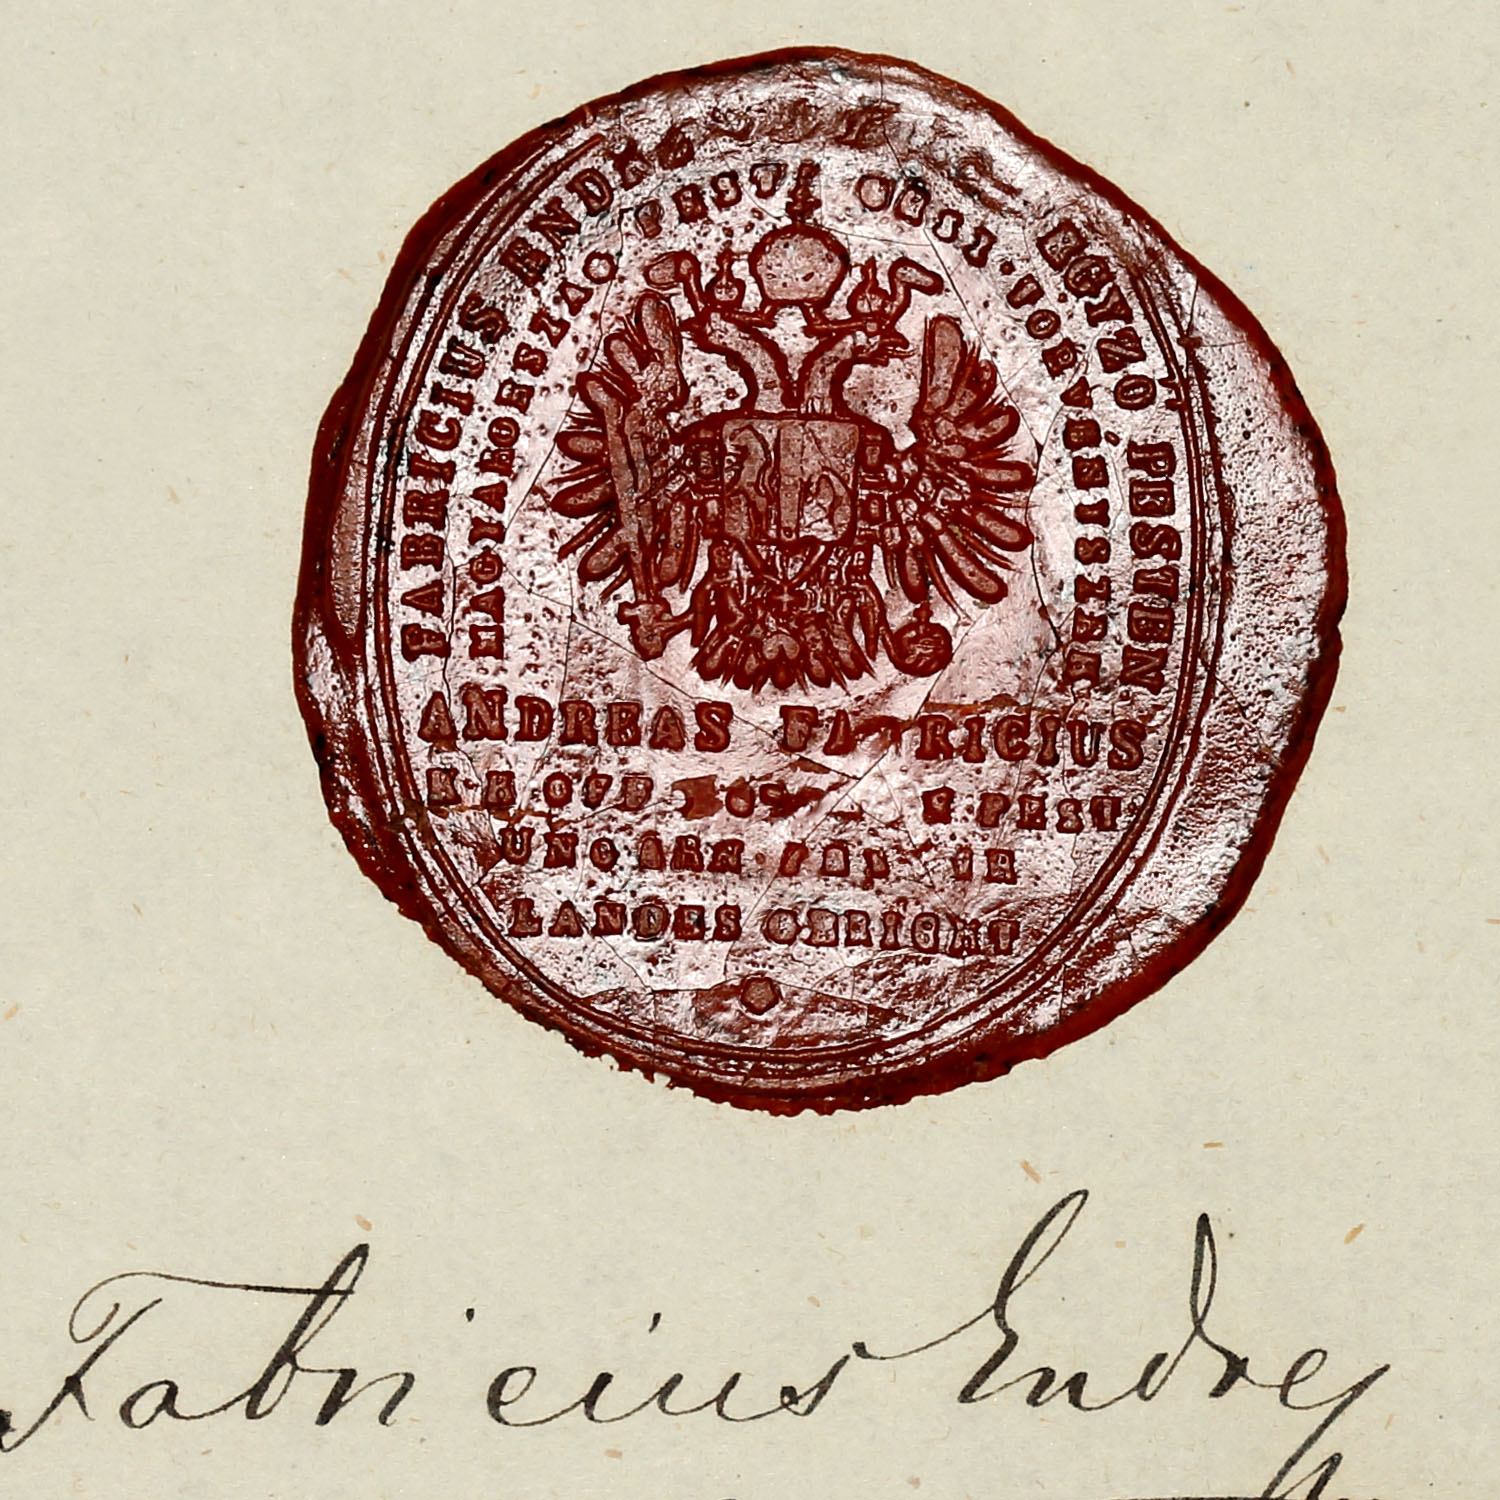 FABRICIUS ENDRE EGYZŐ PESTEN.
MAGYARORSZAG PESTI ORSZ. TÖRVÉNYSZEK
ANDREAS FABRICIUS
K K OFF PEST
UNGARN
LANDES GERICHT
Fabricius Endre